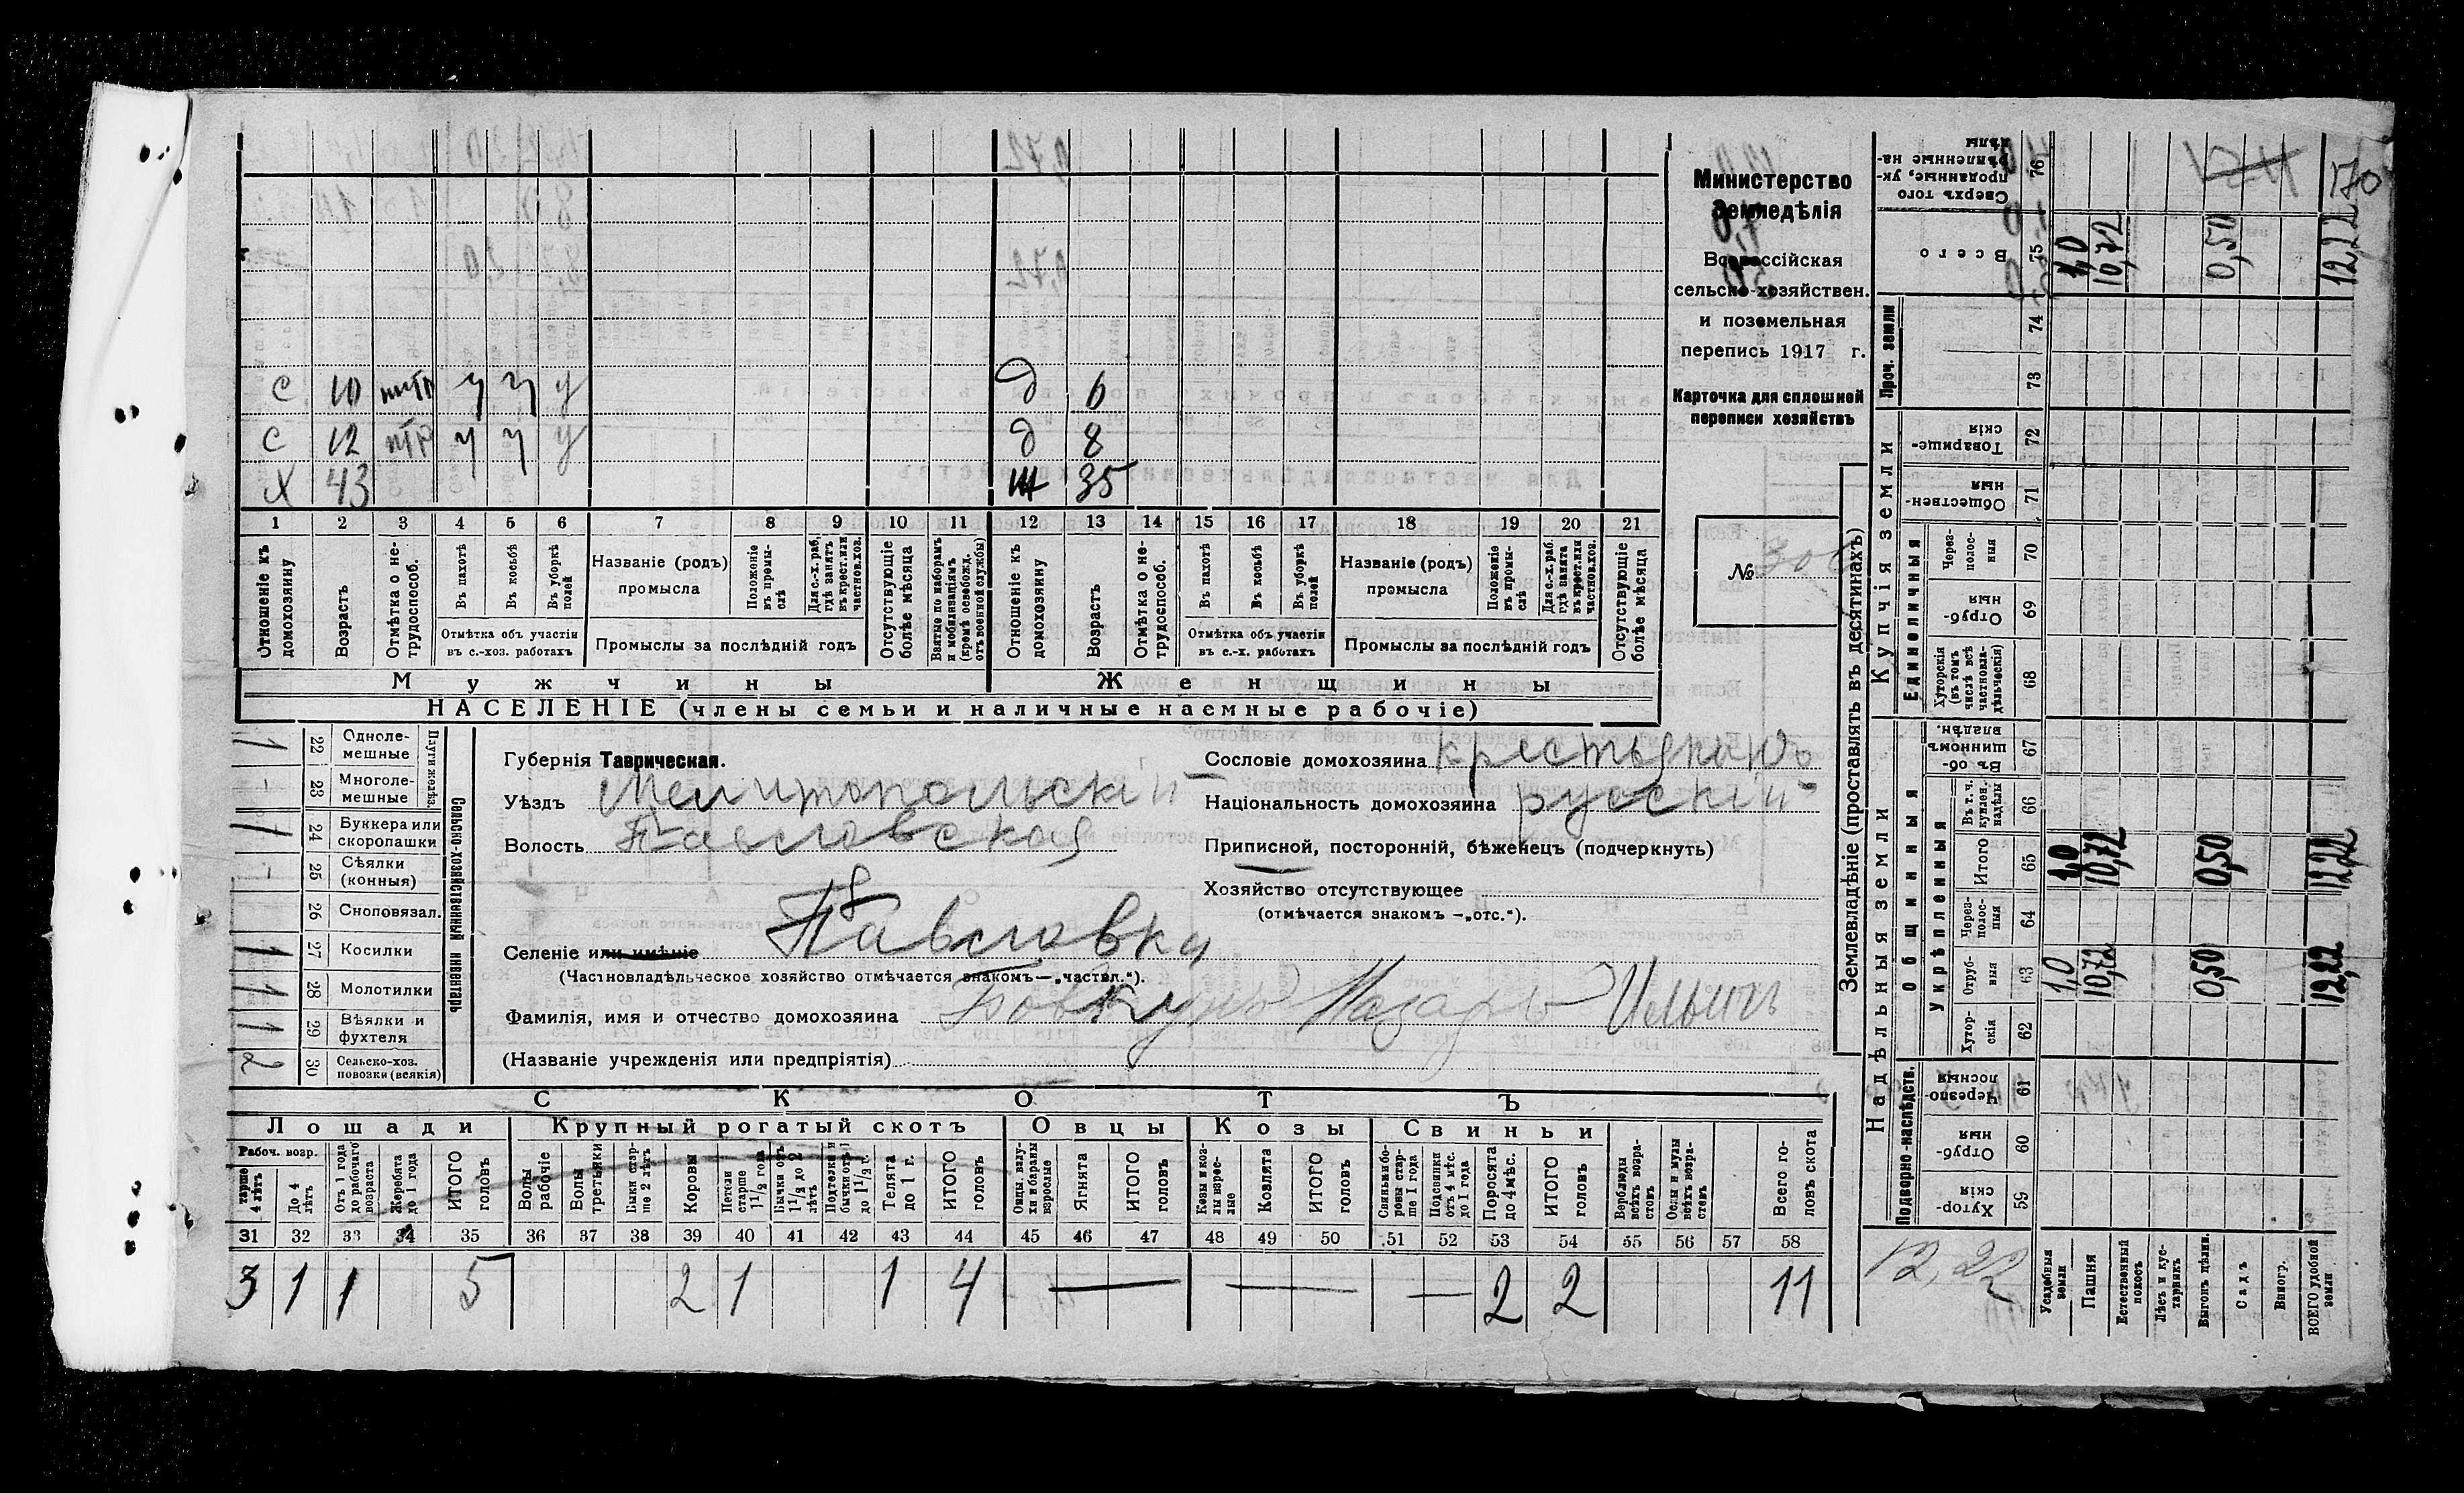 Министерство
Земледѣлія
Всероссійская
сельско-хозяйствен.
и поземельная
перепись 1917 г.
Карточка для сплошной
переписи хозяйствъ
№ 30
с 10 4 4 у д 6
с 12 4 4 у д 8
х 43 ж 35
1 2 3 4 5 6 7 8 9 10 11 12 13 14 15 16 17 18 19 20 21
Отношеніе къ домохозяину
Возрастъ
Отмѣтка о не-трудоспособ.
Въ пахотѣ
Въ косьбѣ
Въ уборкѣ полей
Отмѣтка объ участіи
въ с.-хоз. работахъ
Названіе (родъ)
промысла
Положеніе въ промы-слѣ
Для с.-х. раб. гдѣ занятъ въ крест. или частнов. хоз.
Промыслы за послѣдній годъ
Отсутствующіе болѣе мѣсяца
Взятые по наборамъ и мобилизаціямъ (кромѣ освобожд. отъ военной службы)
Отношеніе къ домохозяину
Возрастъ
Отмѣтка о не-трудоспособ.
Въ пахотѣ
Въ косьбѣ
Въ уборкѣ полей
Отмѣтка объ участіи
въ с.-х. работахъ
Названіе (родъ)
промысла
Положеніе въ промы-слѣ
Для с.-х. раб. гдѣ занята въ крест. или частнов. хоз.
Промыслы за послѣдній годъ
Отсутствующіе болѣе мѣсяца
Мужчины Женщины
НАСЕЛЕНІЕ (члены семьи и наличные наемные рабочіе)
Сельско-хозяйственный инвентарь
Плуги желѣз.
1 22 Однолемешные
- 23 Многолемешные
1 24 Буккера или скоропашки
- 25 Сѣялки (конныя)
26 Сноповязал.
1 27 Косилки
1 28 Молотилки
1 29 Вѣялки и фухтеля
2 30 Сельско-хоз. повозки (всякія)
Губернія Таврическая.
Уѣздъ Мелитопольскій
Волость Павловская
Селеніе или имѣніе Павловка
(Частновладѣльческое хозяйство отмѣчается знакомъ—„частвл.“).
Фамилія, имя и отчество домохозяина Бовкунъ Назаръ Ильичъ
(Названіе учрежденія или предпріятія)
Сословіе домохозяина
Національность домохозяина русскій
Приписной, посторонній, бѣженец (подчеркнуть)
Хозяйство отсутствующее
(отмѣчается знакомъ —„отс.“).
СКОТЪ
Лошади Крупный рогатый скотъ Овцы Козы Свиньи
Рабоч. возр.
Старше 4 лѣтъ
До 4 лѣтъ
Отъ 1 года до рабочаго возраста
Жеребята до 1 года
ИТОГО головъ
Волы рабочіе
Волы третьяки
Быки стар-ше 2 лѣтъ
Коровы
Нетели старше 1½ года
Бычки отъ 1½ до 2 лѣтъ
Подтелки и бычки отъ 1 до 1½ г.
Телята до 1 г.
ИТОГО головъ
Овцы, валу-хи и бараны взрослые
Ягнята
ИТОГО головъ
Козы и коз-лы взрос-лые
Козлята
ИТОГО головъ
Свиньи и бо-ровы стар-ше 1 года
Подсвинки отъ 4 мѣс. до 1 года
Поросята до 4 мѣс.
ИТОГО головъ
Верблюды всѣхъ возра-стовъ
Ослы и мулы всѣхъ возра-стовъ
Всего го-ловъ скота
31 32 33 34 35 36 37 38 39 40 41 42 43 44 45 46 47 48 49 50 51 52 53 54 55 56 57 58
3 1 1 5 2 1 1 4 — — — 2 2 11
Землевладѣніе (проставлять въ десятинахъ)
Надѣльныя земли
Купчія земли
Проч. земли
Подворно-наслѣдств.
Общинныя
Укрѣпленныя
Единоличныя
59 Хутор-скія
60 Отруб-ныя
61 Черезпо-лосныя
62 Хутор-скія
63 Отруб-ныя
64 Через-полос-ныя
65 Итого
66 Въ т. ч. куплен. надѣлы
67 Въ об-щинномъ владѣн.
68 Хуторскія (въ томъ числѣ всѣ частновла-дѣльческія)
69 Отруб-ныя
70 Через-полос-ныя
71 Обществен-ныя
72 Товарище-скія
73
74
75 Всего
76 Сверхъ того проданные, ук-рѣпленные на-дѣлы
12,22
Усадебныя земли 1,0 1,0 1,0
Пашня 10,72 10,72 10,72
Естественный покосъ
Лѣсъ и кус-тарникъ
Выгонъ цѣлин. 0,50 0,50 0,50
Садъ
Виногр.
ВСЕГО удобной земли 12,22 12,22 12,22
170